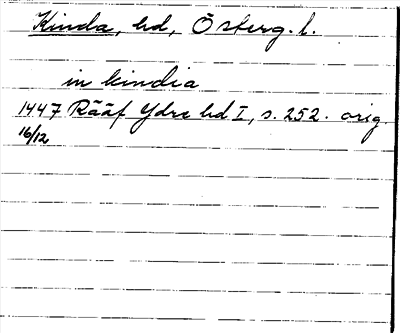 Kinda, hd, Österg. l.
in kindia
1447 Rääf Ydre hd I, s. 252. orig.
16/12